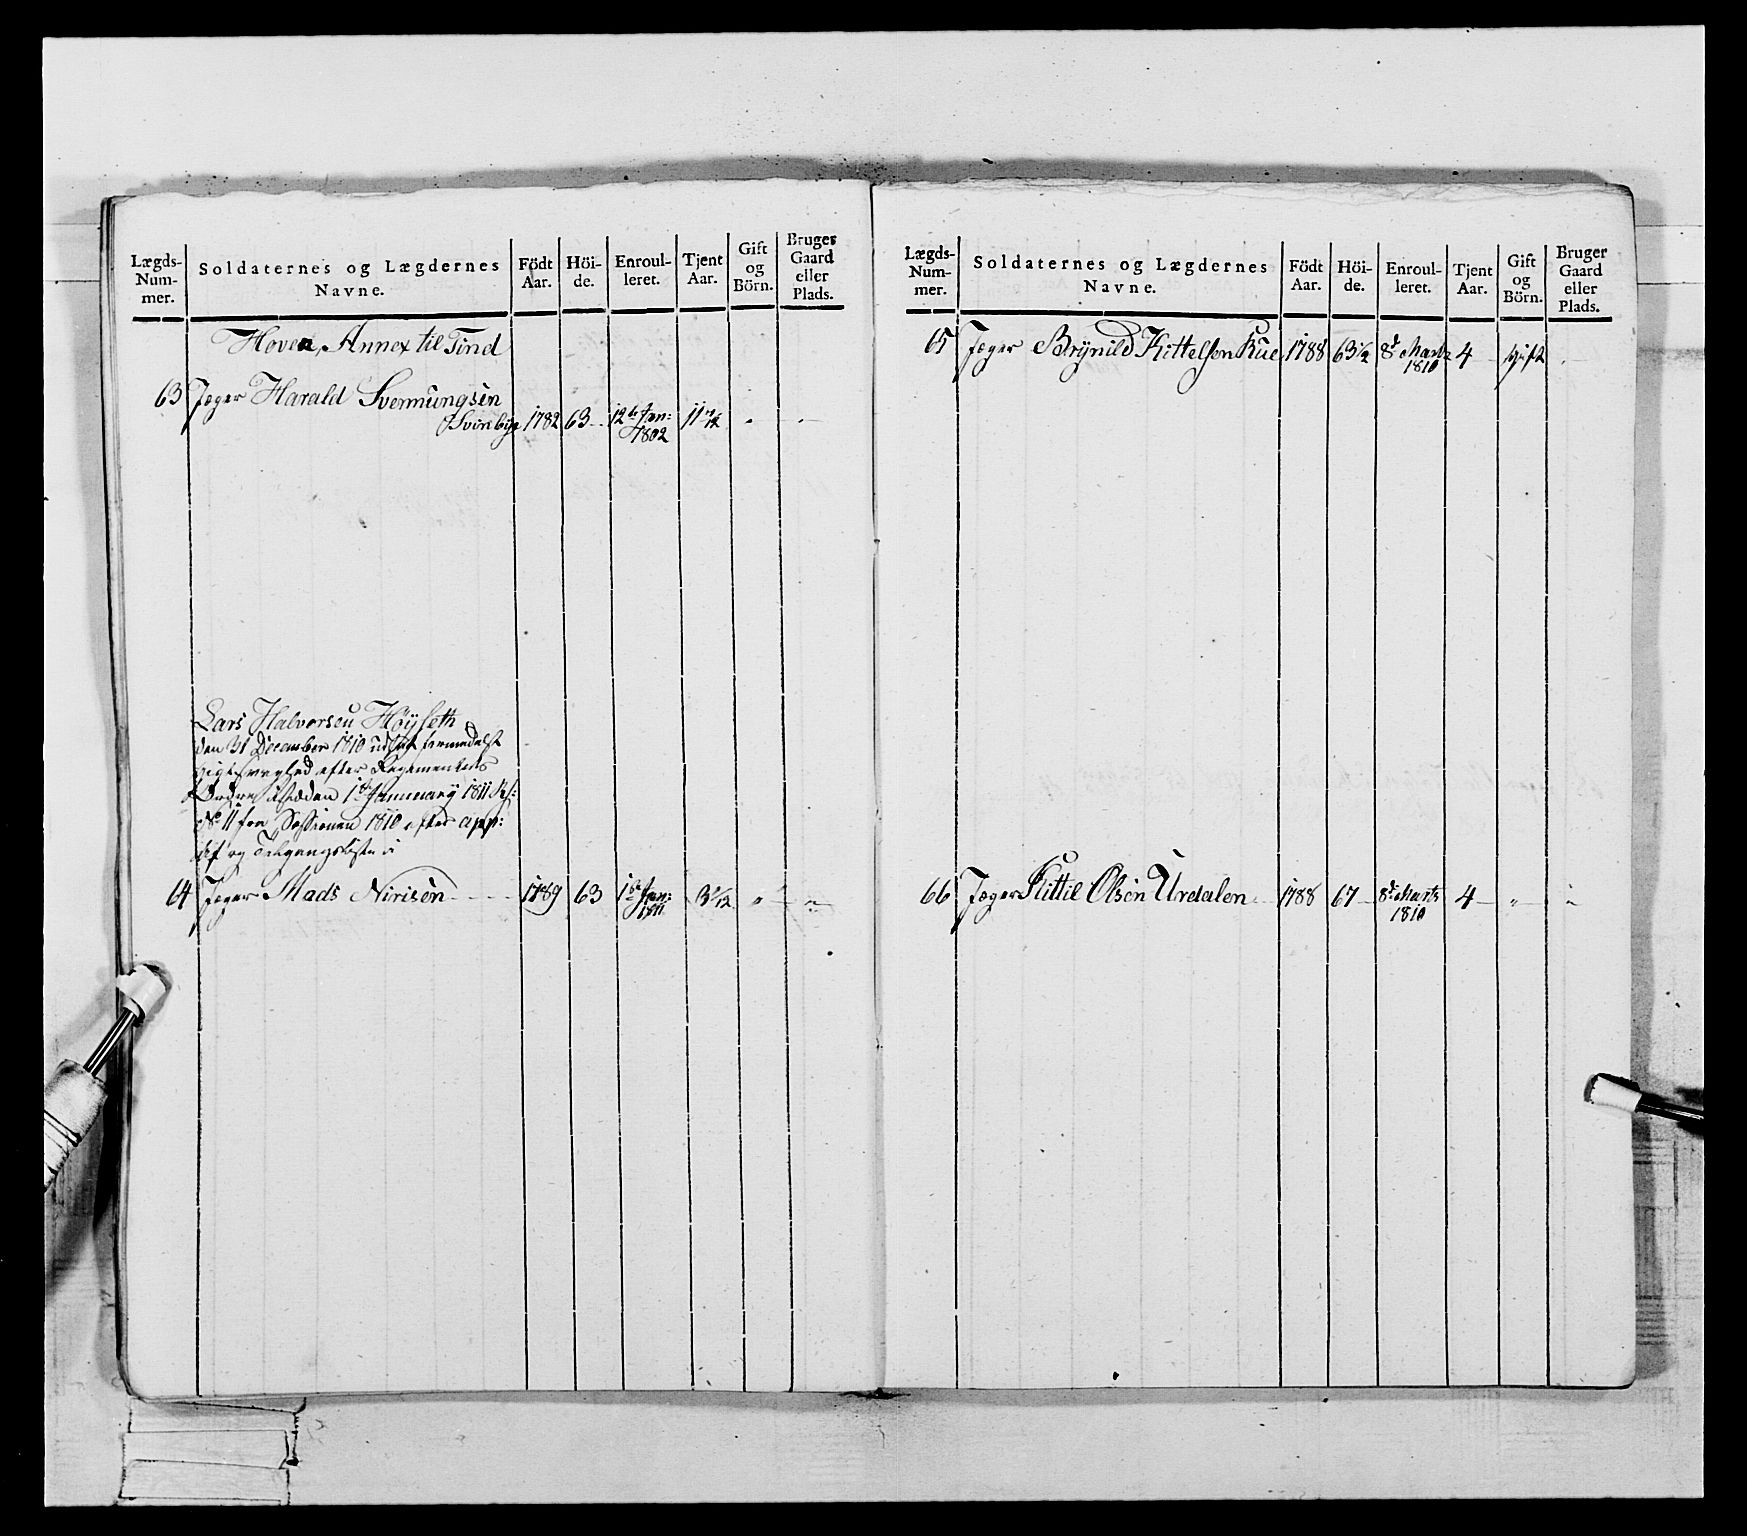 Lægds-Num-mer. Soldaternes og Lægdernes Navne. Födt Aar. Höi-de. Enroul-leret. Tjent Aar. Gift og Börn. Bruger Gaard eller Plads.
Hoven, Annex til Tind
63 Jæger Harald Svennungsen
1782 63 12te Jan: 1802 11 11/12
Lars Halvorsen Höyseth
den 31 December 1810 formedelst
efter Regimentets
Ordre 1te Januarij 1811
No 11 fra Sessionen 1810 efter app:
og Tilgangsliste
64 Jæger Mads Nirisen 1789 63 1te Jan: 1811
Lægds-Num-mer. Soldaternes og Lægdernes Navne. Födt Aar. Höi-de. Enroul-leret. Tjent Aar. Gift og Börn. Bruger Gaard eller Plads.
65 Jæger Brÿnild Kittelsen Rue 1788 63½ 8de Marts 1810 4 gift
66 Jæger Kittil Olsen Uredalen 1788 67 8de Marts 1810 4